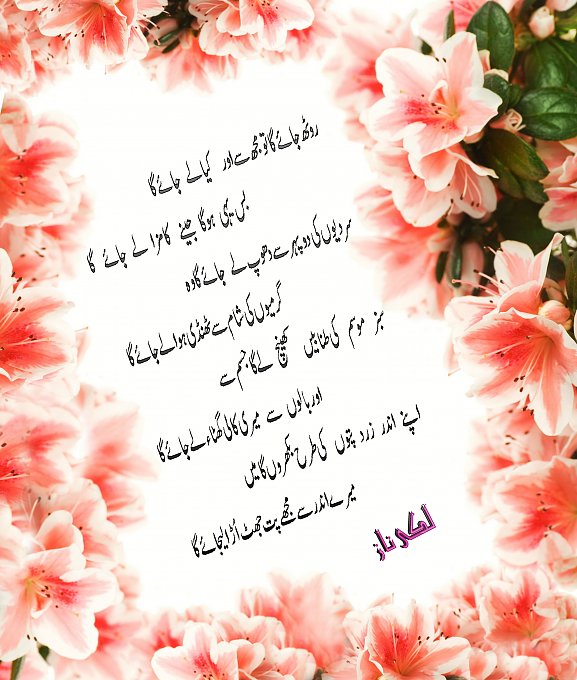 روٹھ جائے گا تو مجھ سے اور کیا لے جائے گا
بس یہی ہوگا جینے کا مزا لے جائے گا
سردیوں کی دوپہر سے دھوپ لے جائے گا وہ
گرمیوں کی شام سے ٹھنڈی ہوا لے جائے گا
سبز موسم کی طنابیں کھینچ لے گا جسم سے
اور بالوں سے میری کالی گھٹاء لے جائے گا
اپنے اندر زرد پتوں کی طرح بکھروں گا میں
میرے اندر سے مجھے پت جھٹ اُڑا لیجائے گا
لکی ناز